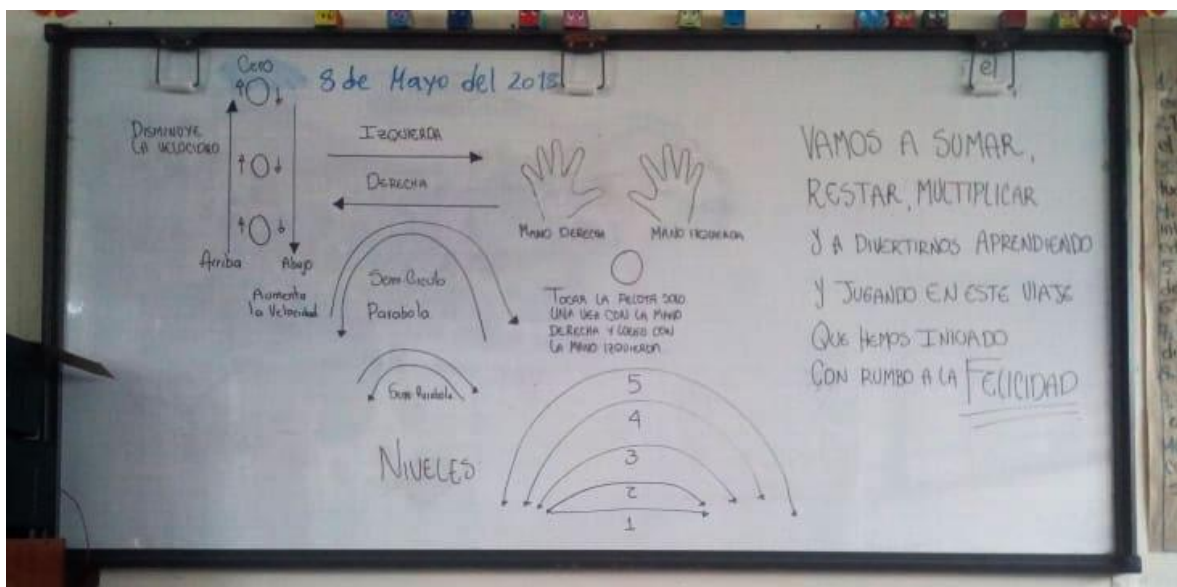 Cero
8 de Mayo del 2018
el
DISMINUYE
LA VELOCIDAD
Arriba
Abajo
Aumenta
la Velocidad
IZQUIERDA
DERECHA
Semi-Circulo
Parabola
Semi-Parabola
MANO DERECHA
MANO IZQUIERDA
TOCAR LA PELOTA SOLO
UNA VEZ CON LA MANO
DERECHA Y LUEGO CON
LA MANO IZQUIERDA
NIVELES
5
4
3
2
1
VAMOS A SUMAR,
RESTAR, MULTIPLICAR
Y A DIVERTIRNOS APRENDIENDO
Y JUGANDO EN ESTE VIAJE
QUE HEMOS INICIADO
CON RUMBO A LA FELICIDAD